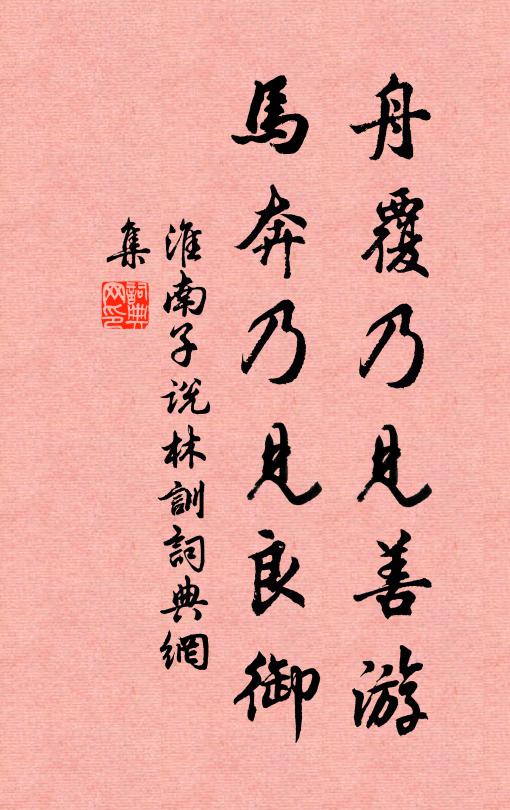 舟覆乃見善游
馬奔乃見良御
淮南子説林訓詞典網
集
詞典
网印